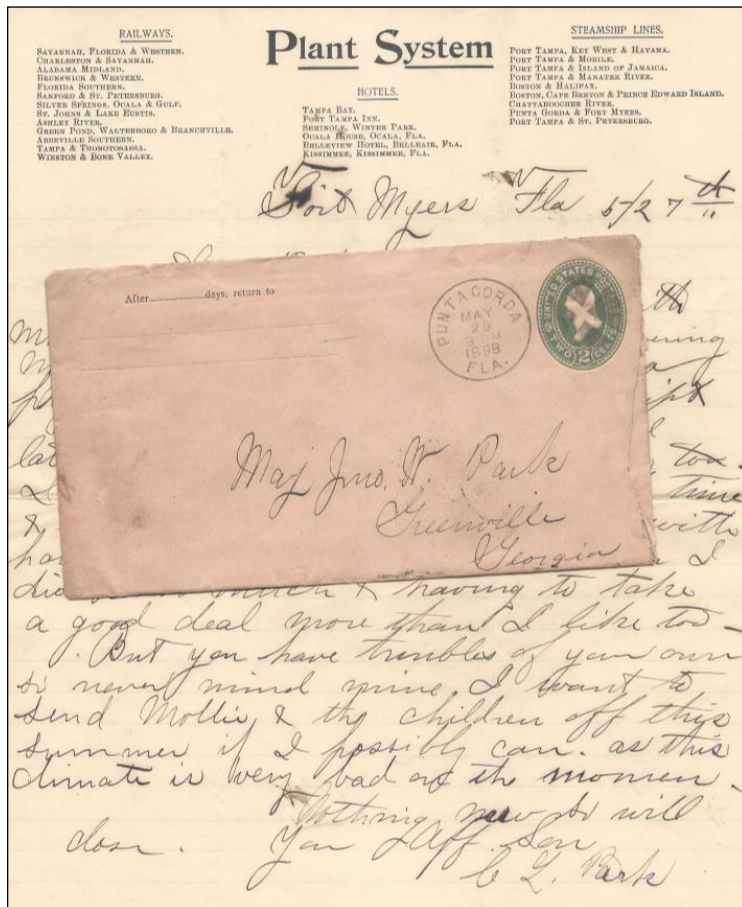 Plant System
RAILWAYS.
SAVANNAH, FLORIDA & WESTERN.
CHARLESTON & SAVANNAH.
ALABAMA MIDLAND.
BRUNSWICK & WESTERN.
FLORIDA SOUTHERN.
SANFORD & ST. PETERSBURG.
SILVER SPRINGS, OCALA & GULF.
ST. JOHNS & LAKE EUSTIS.
ASHLEY RIVER.
GREEN POND, WALTERBORO & BRANCHVILLE.
ABBEVILLE SOUTHERN.
TAMPA & THONOTOSASSA.
WINSTON & BONE VALLEY.
HOTELS.
TAMPA BAY.
PORT TAMPA INN.
SEMINOLE, WINTER PARK.
OCALA HOUSE, OCALA, FLA.
BELLEVIEW HOTEL, BELLEAIR, FLA.
KISSIMMEE, KISSIMMEE, FLA.
STEAMSHIP LINES.
PORT TAMPA, KEY WEST & HAVANA.
PORT TAMPA & MOBILE.
PORT TAMPA & ISLAND OF JAMAICA.
PORT TAMPA & MANATEE RIVER.
BOSTON & HALIFAX.
BOSTON, CAPE BRETON & PRINCE EDWARD ISLAND.
CHATTAHOOCHEE RIVER.
PUNTA GORDA & FORT MYERS.
PORT TAMPA & ST. PETERSBURG.
Fort Myers Fla 5/27th
After days, return to
PUNTA GORDA
MAY
28
PM
1898
FLA.
UNITED STATES POSTAGE
TWO 2 CENTS
Maj Jno. W. Park
Greenville
Georgia
too
time
& with
I
did much & having to take
a good deal more than I like too -
But you have troubles of your own
so never mind mine I want to
send Mollie & the children off this
summer if I possibly can. as this
climate is very bad on the women -
Nothing new so will
close. Your Aff. Son
C L. Park